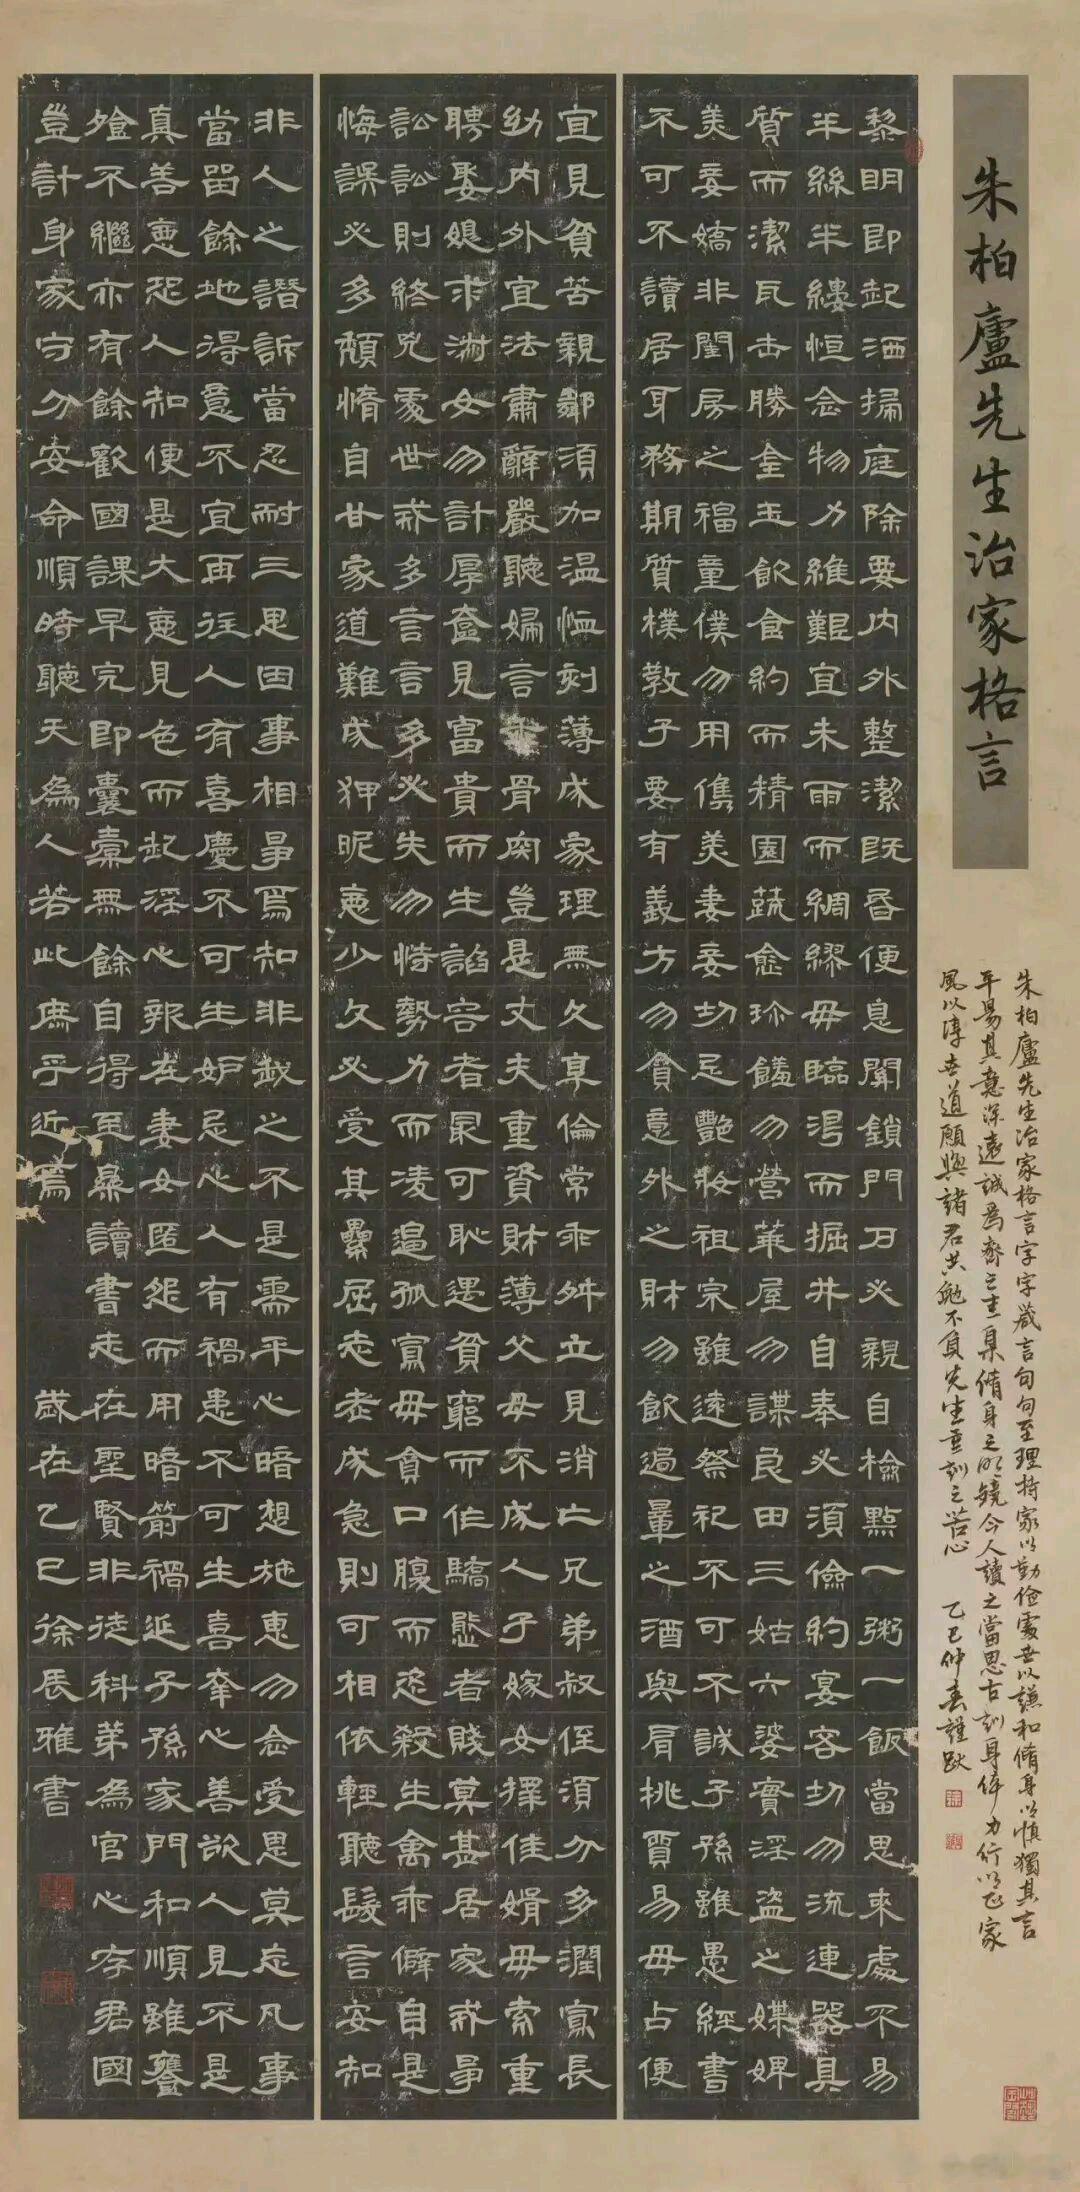 朱柏廬先生治家格言
朱柏廬先生治家格言字字箴言句句至理持家以勤儉處世以謙和脩身以慎獨其言
平易其意深遠誠為齊之圭臬脩身之明鏡今人讀之當思古訓身體力行以正家
風以淳世道願與諸君共勉不負先生垂訓之苦心 乙巳仲春謹跋
黎明即起洒掃庭除要內外整潔既昏便息關鎖門戶必親自檢點一粥一飯當思來處不易
半絲半縷恒念物力維艱宜未雨而綢繆毋臨渴而掘井自奉必須儉約宴客切勿流連器具
質而潔瓦缶勝金玉飲食約而精園蔬愈珍饈勿營華屋勿謀良田三姑六婆實淫盜之媒婢
美妾嬌非閨房之福童僕勿用儁美妻妾切忌艷妝祖宗雖遠祭祀不可不誠子孫雖愚經書
不可不讀居身務期質樸教子要有義方勿貪意外之財勿飲過量之酒與肩挑貿易毋占便
宜見貧苦親鄰須加溫恤刻薄成家理無久享倫常乖舛立見消亡兄弟叔侄須分多潤寡長
幼內外宜法肅辭嚴聽婦言乖骨肉豈是丈夫重資財薄父母不成人子嫁女擇佳婿毋索重
聘娶媳求淑女勿計厚奩見富貴而生諂容者最可恥遇貧窮而作驕態者賤莫甚居家戒爭
訟訟則終凶處世戒多言言多必失勿恃勢力而凌逼孤寡毋貪口腹而恣殺生禽乖僻自是
悔誤必多頹惰自甘家道難成狎昵惡少久必受其累屈志老成急則可相依輕聽髮言安知
非人之譖訴當忍耐三思因事相爭焉知非我之不是需平心暗想施惠勿念受恩莫忘凡事
當留餘地得意不宜再往人有喜慶不可生妒忌心人有禍患不可生喜幸心善欲人見不是
真善惡恐人知便是大惡見色而起淫心報在妻女匿怨而用暗箭禍延子孫家門和順雖饔
飧不繼亦有餘歡國課早完即囊橐無餘自得至樂讀書志在聖賢非徒科第為官心存君國
豈計身家守分安命順時聽天為人若此庶乎近焉 歲在乙巳徐辰雅書